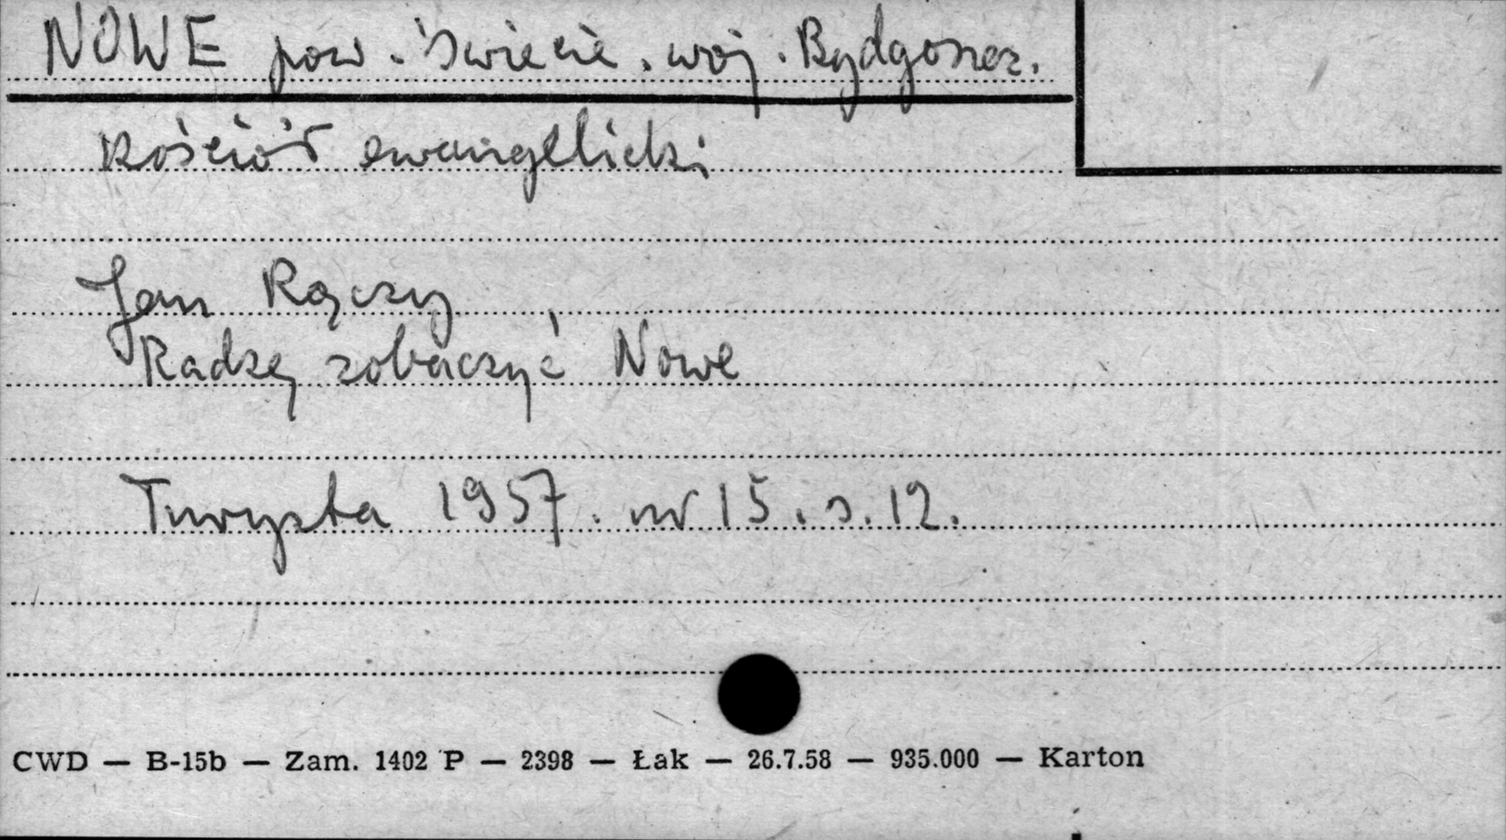 NOWE pow. Świecie. woj. Bydgoszcz.
Kościół ewangelicki
Jan Rączy
Radzę zobaczyć Nowe
Turysta 1957. nr 15. s. 12.
CWD — B-15b — Zam. 1402 P — 2398 — Łak — 26.7.58 — 935.000 — Karton